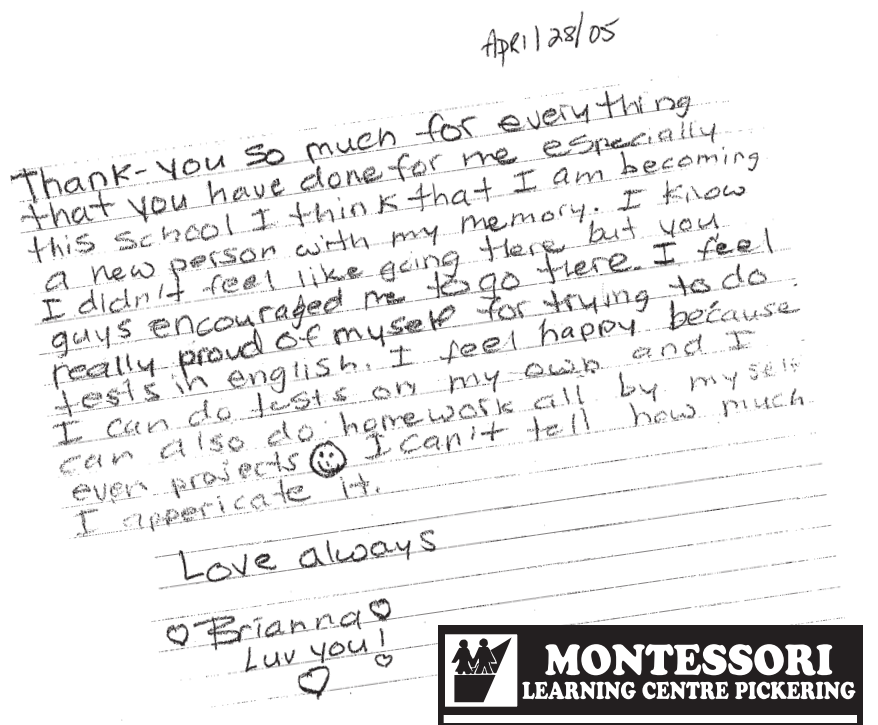 April 28/05
Thank-you so much for everything
that you have done for me especially
this school I think that I am becoming
a new person with my memory. I know
I didn't feel like going there but you
guys encouraged me to go there. I feel
really proud of myself for trying to do
tests in english. I feel happy because
I can do tests on my own and I
can also do homework all by myself
even projects I can't tell how much
I appericate it.
Love always
Brianna
Luv you!
MONTESSORI
LEARNING CENTRE PICKERING